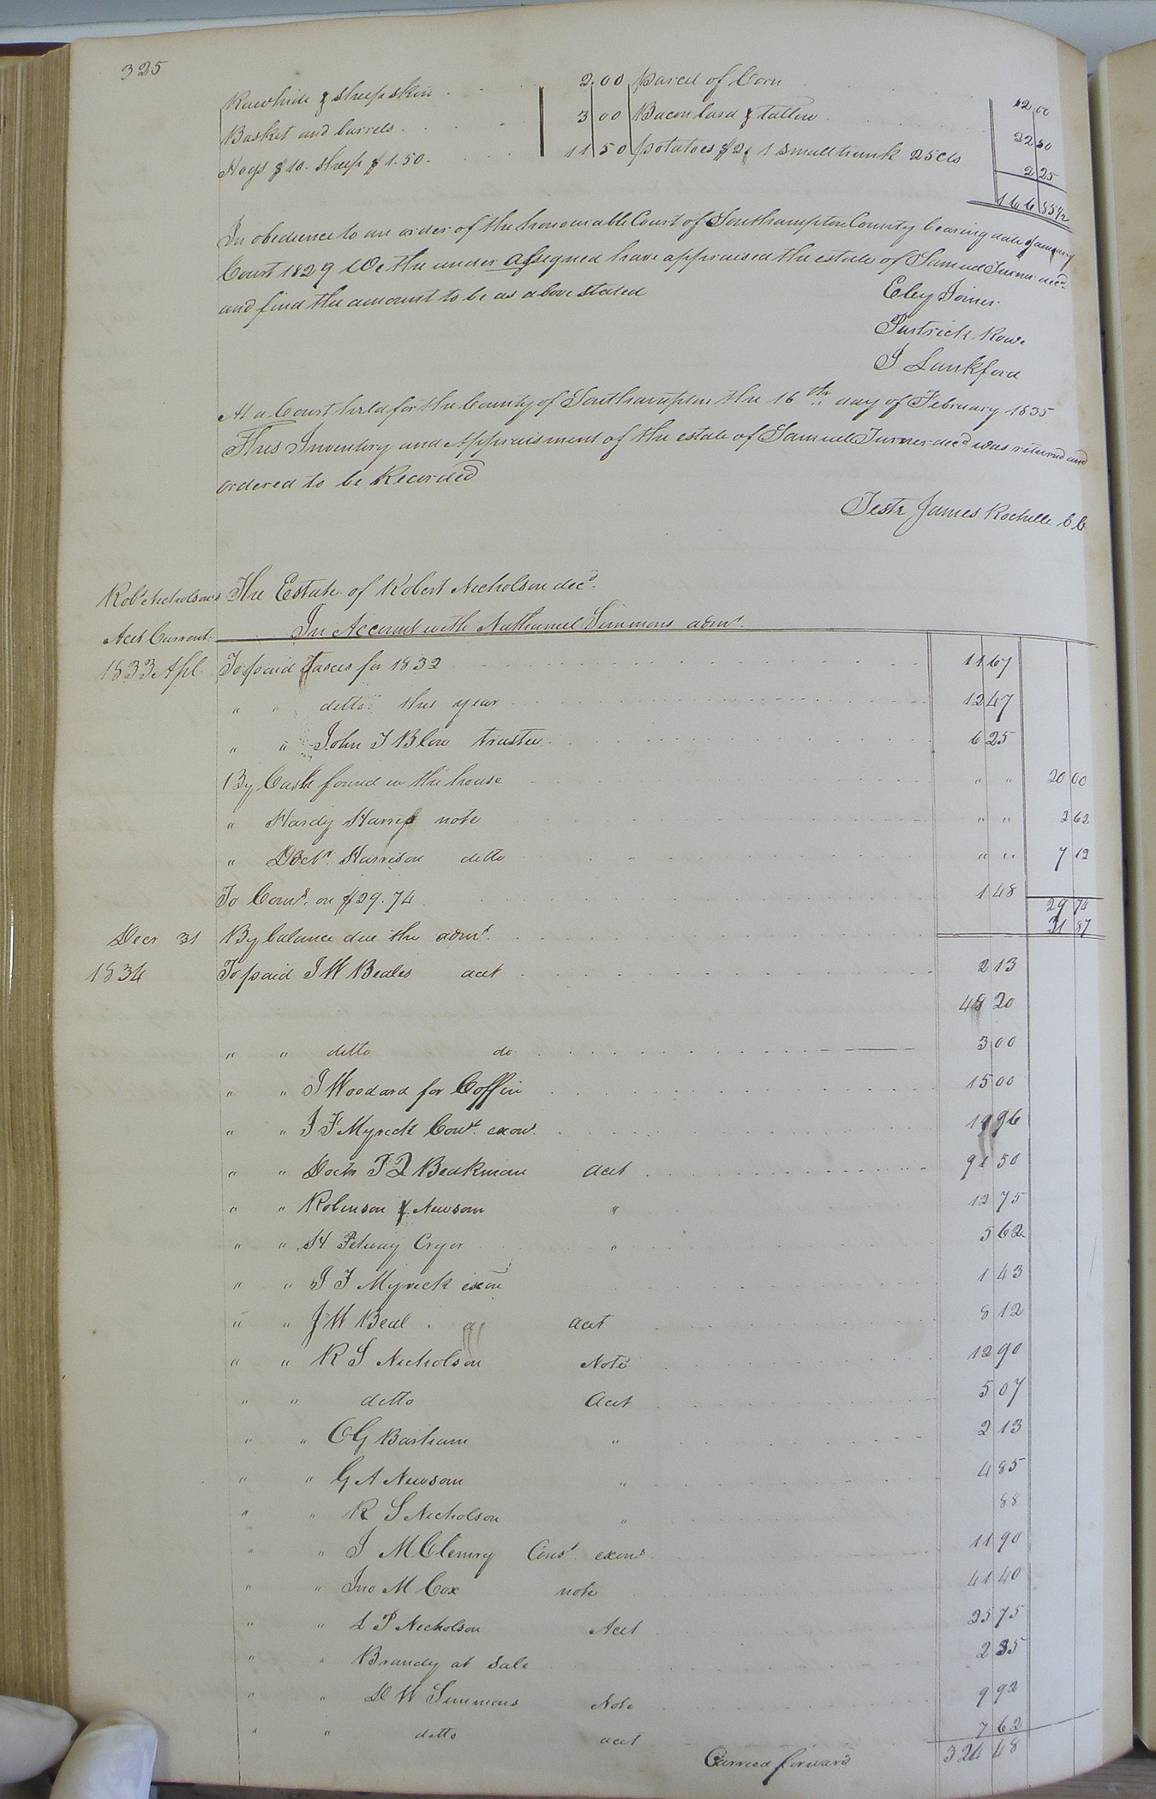 325
Rawhide & sheepskin . . . 2.00 parcel of Corn . . . 12 00
Basket and barrels . . . 3 00 Bacon lard & tallow . . . 22 50
Hogs $10. sheep $1.50. . . . 11 50 potatoes $2, 1 small trunk 25 cts 2 25
166 85 1/2
In obedience to an order of the honourable Court of Southampton County bearing date January
Court 1829 We the under assigned have appraised the estate of Samuel Turner decd.
and find the amount to be as above stated
Eley Joiner
Patrick Rowe
J Lankford
At a Court held for the County of Southampton the 16th day of February 1835
This Inventory and Appraisment of the estate of Samuel Turner decd was returned and
ordered to be Recorded
Teste James Rochelle CC
Robt Nicholson's The Estate of Robert Nicholson decd.
Acct Current. In Account with Nathaniel Simmons admr.
1833 Apl To paid Taxes for 1832 11 67
" " ditto this year 12 47
" " John T Blow trustee 6 25
By Cash found in the house " " 20 00
" Hardy Harris note " " 2 62
" Doctr. Harrison ditto " " 7 12
To Coms. on $29.74 1 48
29 74
Decr 31 By balance due the admr. 31 87
1834 To paid J W Beales acct 2 13
48 20
" " ditto do 3 00
" " J Woodard for Coffin 15 00
" " J F Myrick Cont. exon. 19 96
" " Doctr P Q Beakman acct 91 50
" " Robinson & Newsom " 12 75
" " H Petway Cryer " 5 62
" " J F Myrick exon 1 43
" " J W Beal acct 8 12
" " R S Nicholson Note 12 90
" " ditto Acct 5 07
" " O G Barham " 2 13
" " G A Newsom " 4 85
" " R S Nicholson " 88
" " J McClenny Cons. exons. 11 90
" " Jno M Cox note 41 40
" " L P Nicholson Acct 25 75
" " Brandy at sale 2 35
" " D W Simmons Note 9 92
" " ditto acct 7 62
Carried forward 324 48